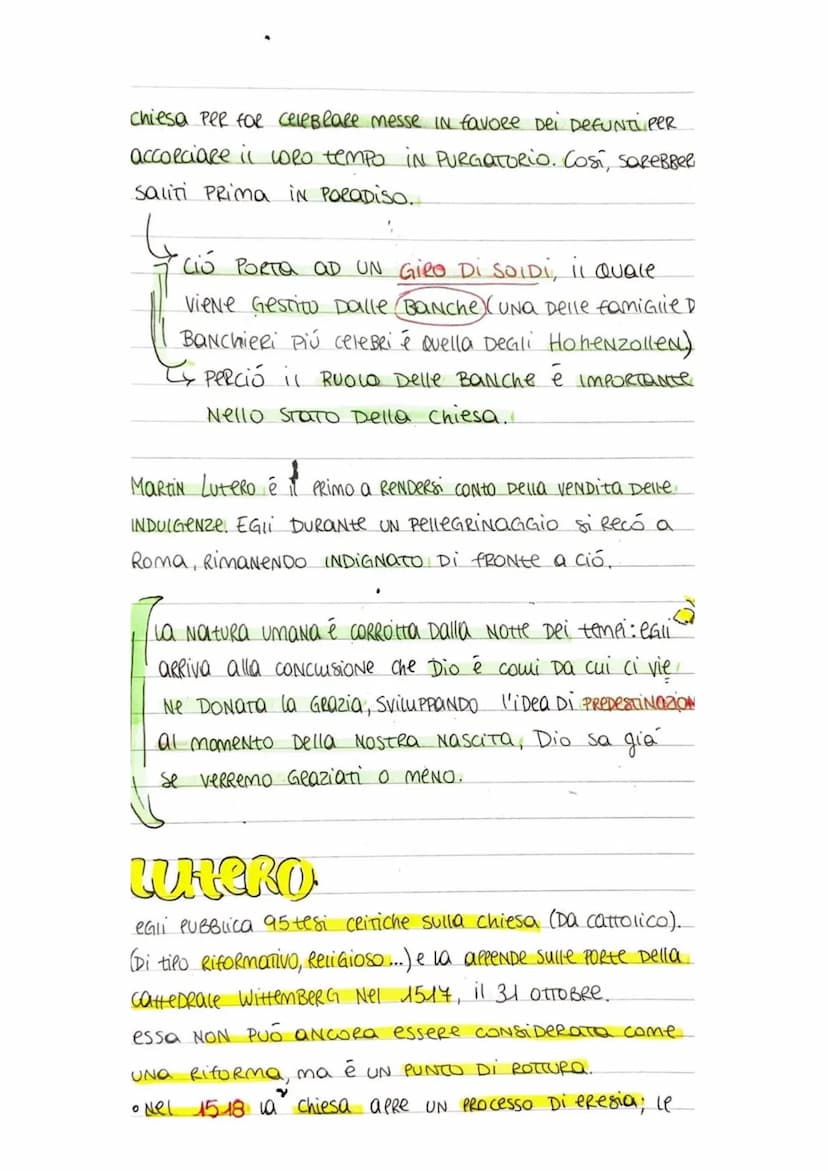 chiesa per far celebrare messe in favore dei defunti per
accorciare il loro tempo in purgatorio. Così, sarebber
saliti prima in Paradiso.
Ció porta ad un giro di soldi, il quale
viene gestito dalle banche (una delle famiglie d
banchieri piú celebri é quella degli Hohenzollen)
perció il ruolo delle banche é importante
nello stato della chiesa.
Martin Lutero é il primo a rendersi conto della vendita delle
indulgenze. Egli durante un pellegrinaggio si recó a
Roma, rimanendo indignato di fronte a ció.
La natura umana é corrotta dalla notte dei tempi: egli
arriva alla conclusione che Dio é colui da cui ci vie
ne donata la grazia, sviluppando l'idea di predestinazion
al momento della nostra nascita, Dio sa giá
se verremo graziati o meno.
LUTERO.
egli pubblica 95 tesi critiche sulla chiesa (da cattolico).
(di tipo riformativo, religioso...) e la appende sulle porte della
cattedrale Wittemberg nel 1517, il 31 ottobre.
essa non puó ancora essere considerata come
una riforma, ma é un punto di rottura.
• nel 1518 la chiesa apre un processo di eresia; le